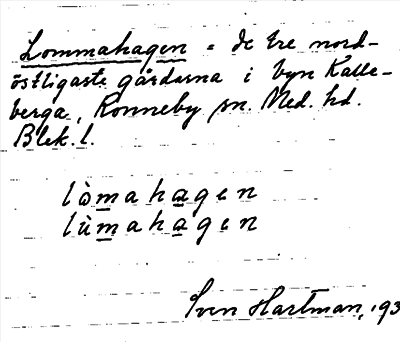 Lommahagen = de tre nord-
östligaste gårdarna i byn Kalle-
berga, Ronneby sn. Med. hd.
Blek. l.
lòmahagen
lùmahagen
Sven Hartman, 193